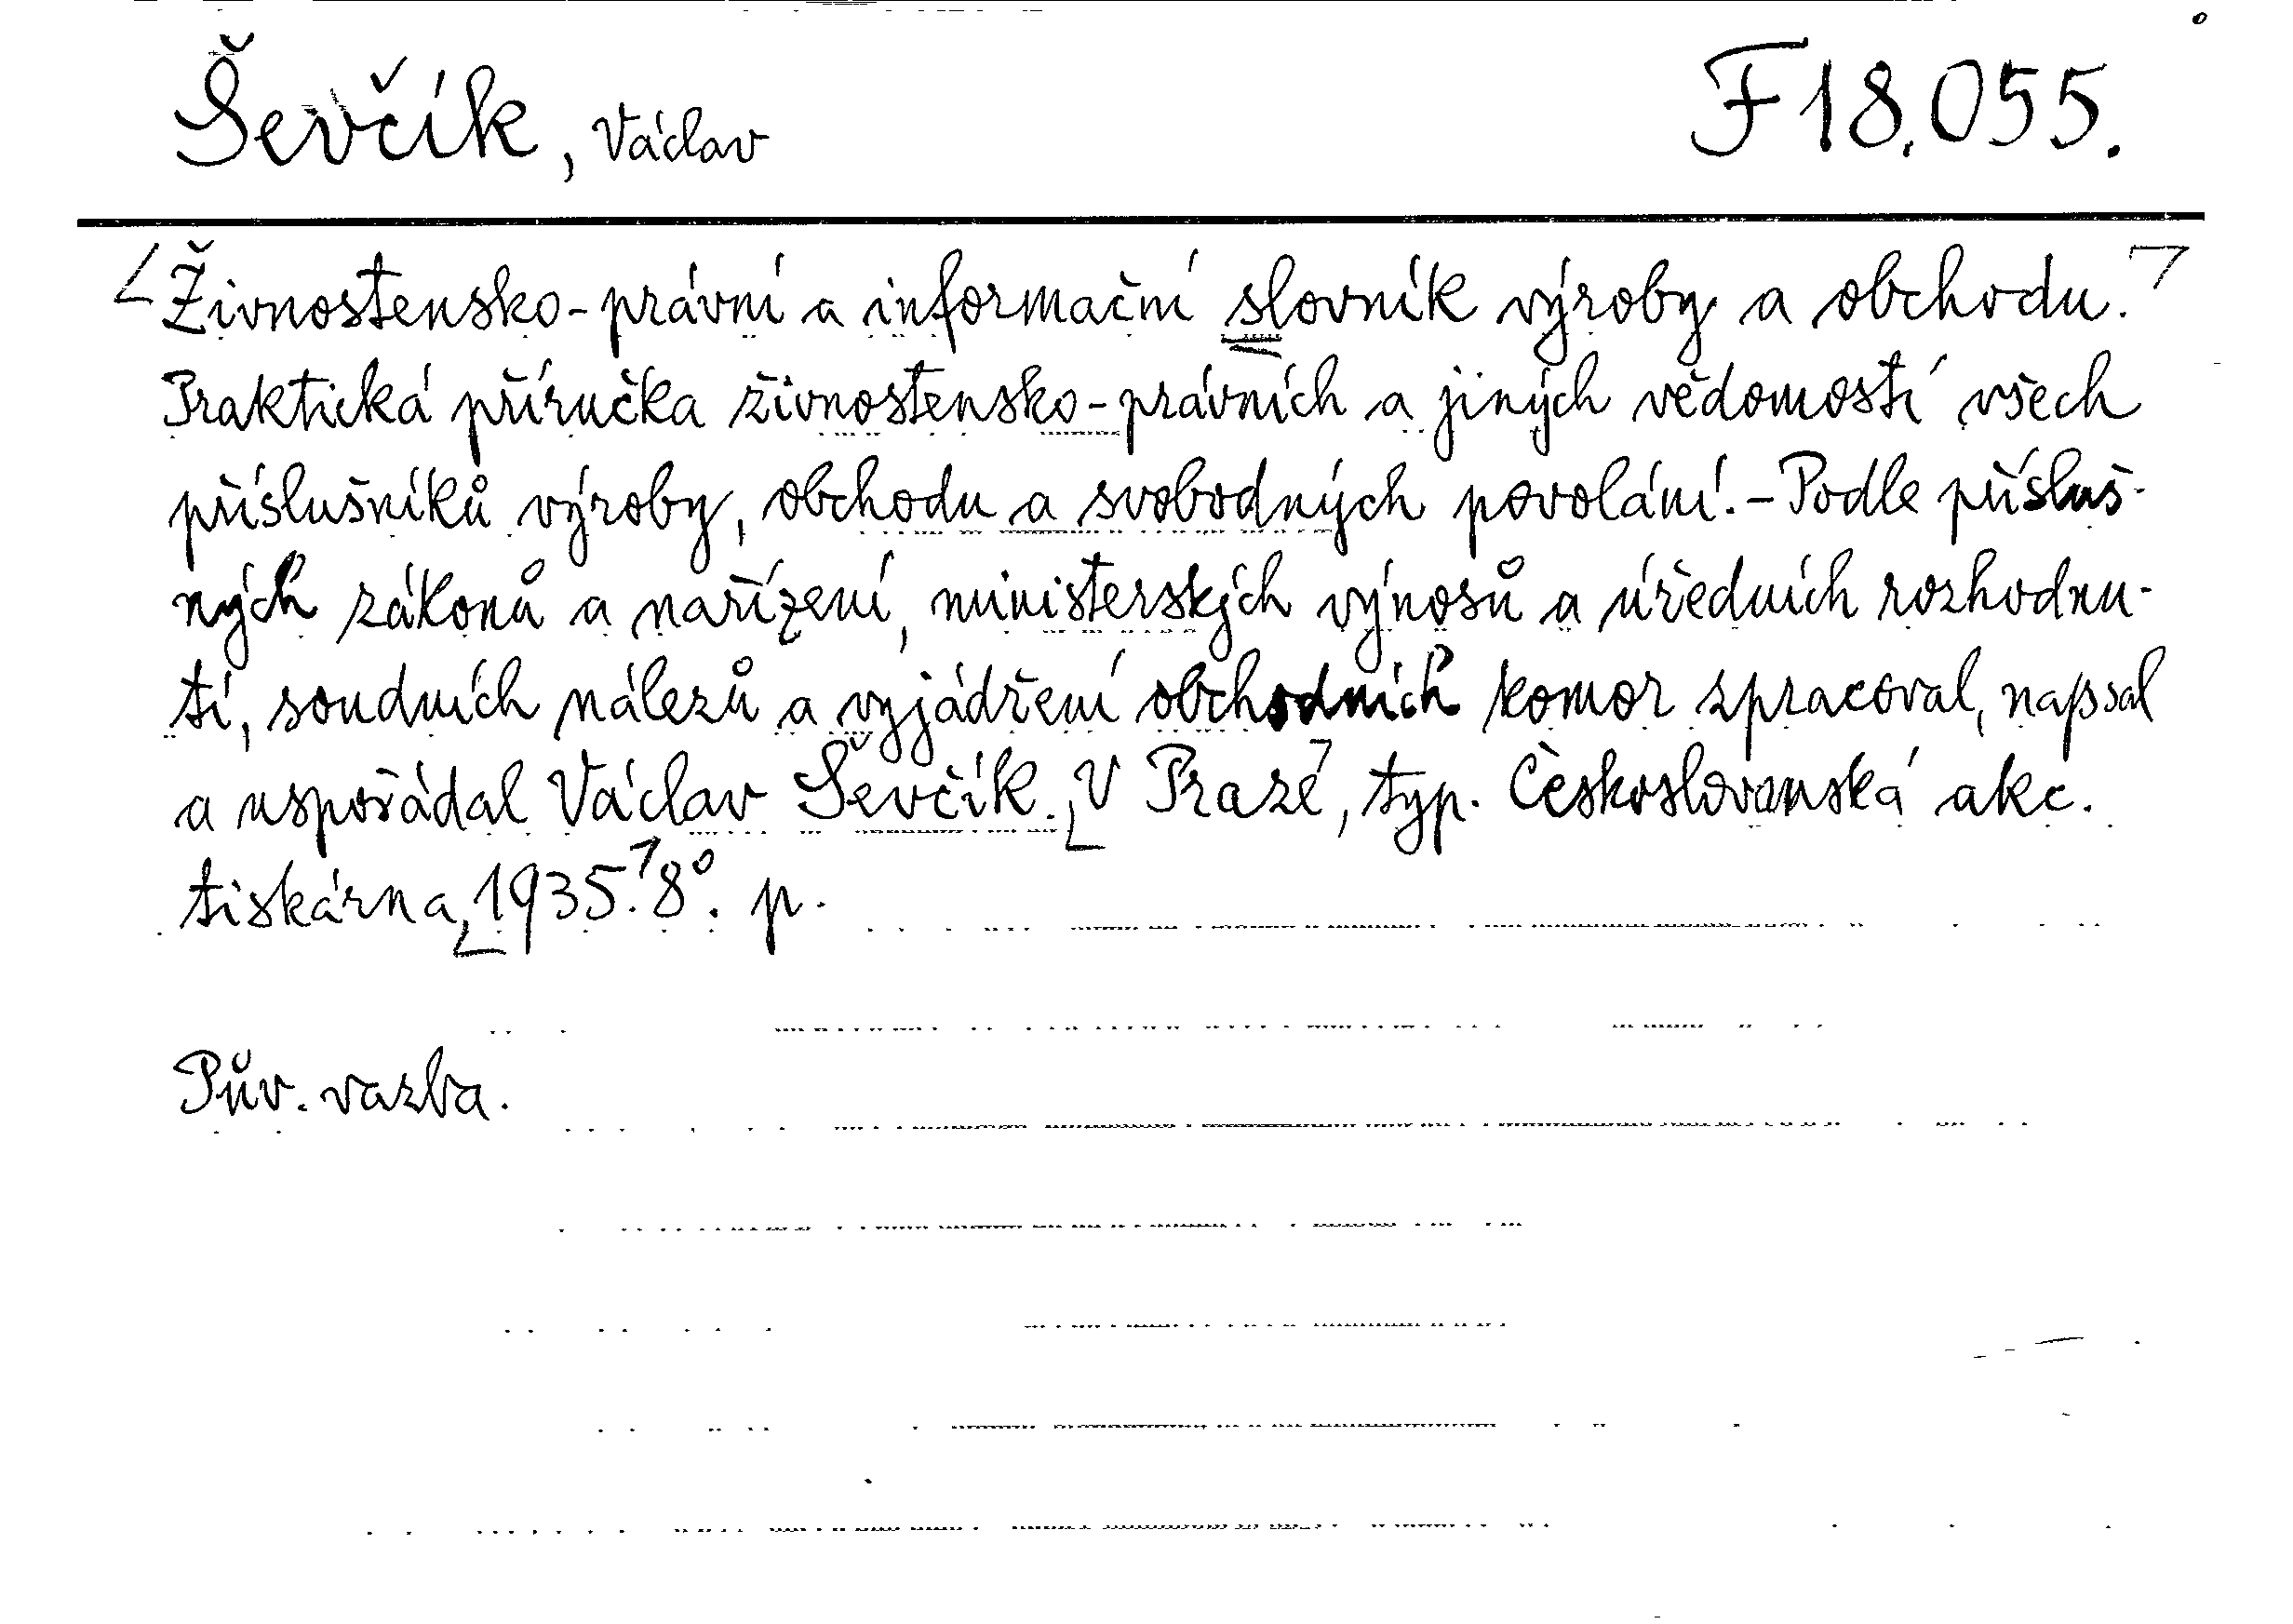 Ševčík, Václav F 18.055.
Živnostensko-právní a informační slovník výroby a obchodu.
Praktická příručka živnostensko-právních a jiných vědomostí všech
příslušníků výroby, obchodu a svobodných povolání. - Podle přísluš-
ných zákonů a nařízení, ministerských výnosů a úředních rozhodnu-
tí, soudních nálezů a vyjádření obchodních komor zpracoval, napsal
a uspořádal Václav Ševčík. V Praze, typ. Československá akc.
tiskárna, 1935. 8°. p.
Pův. vazba.